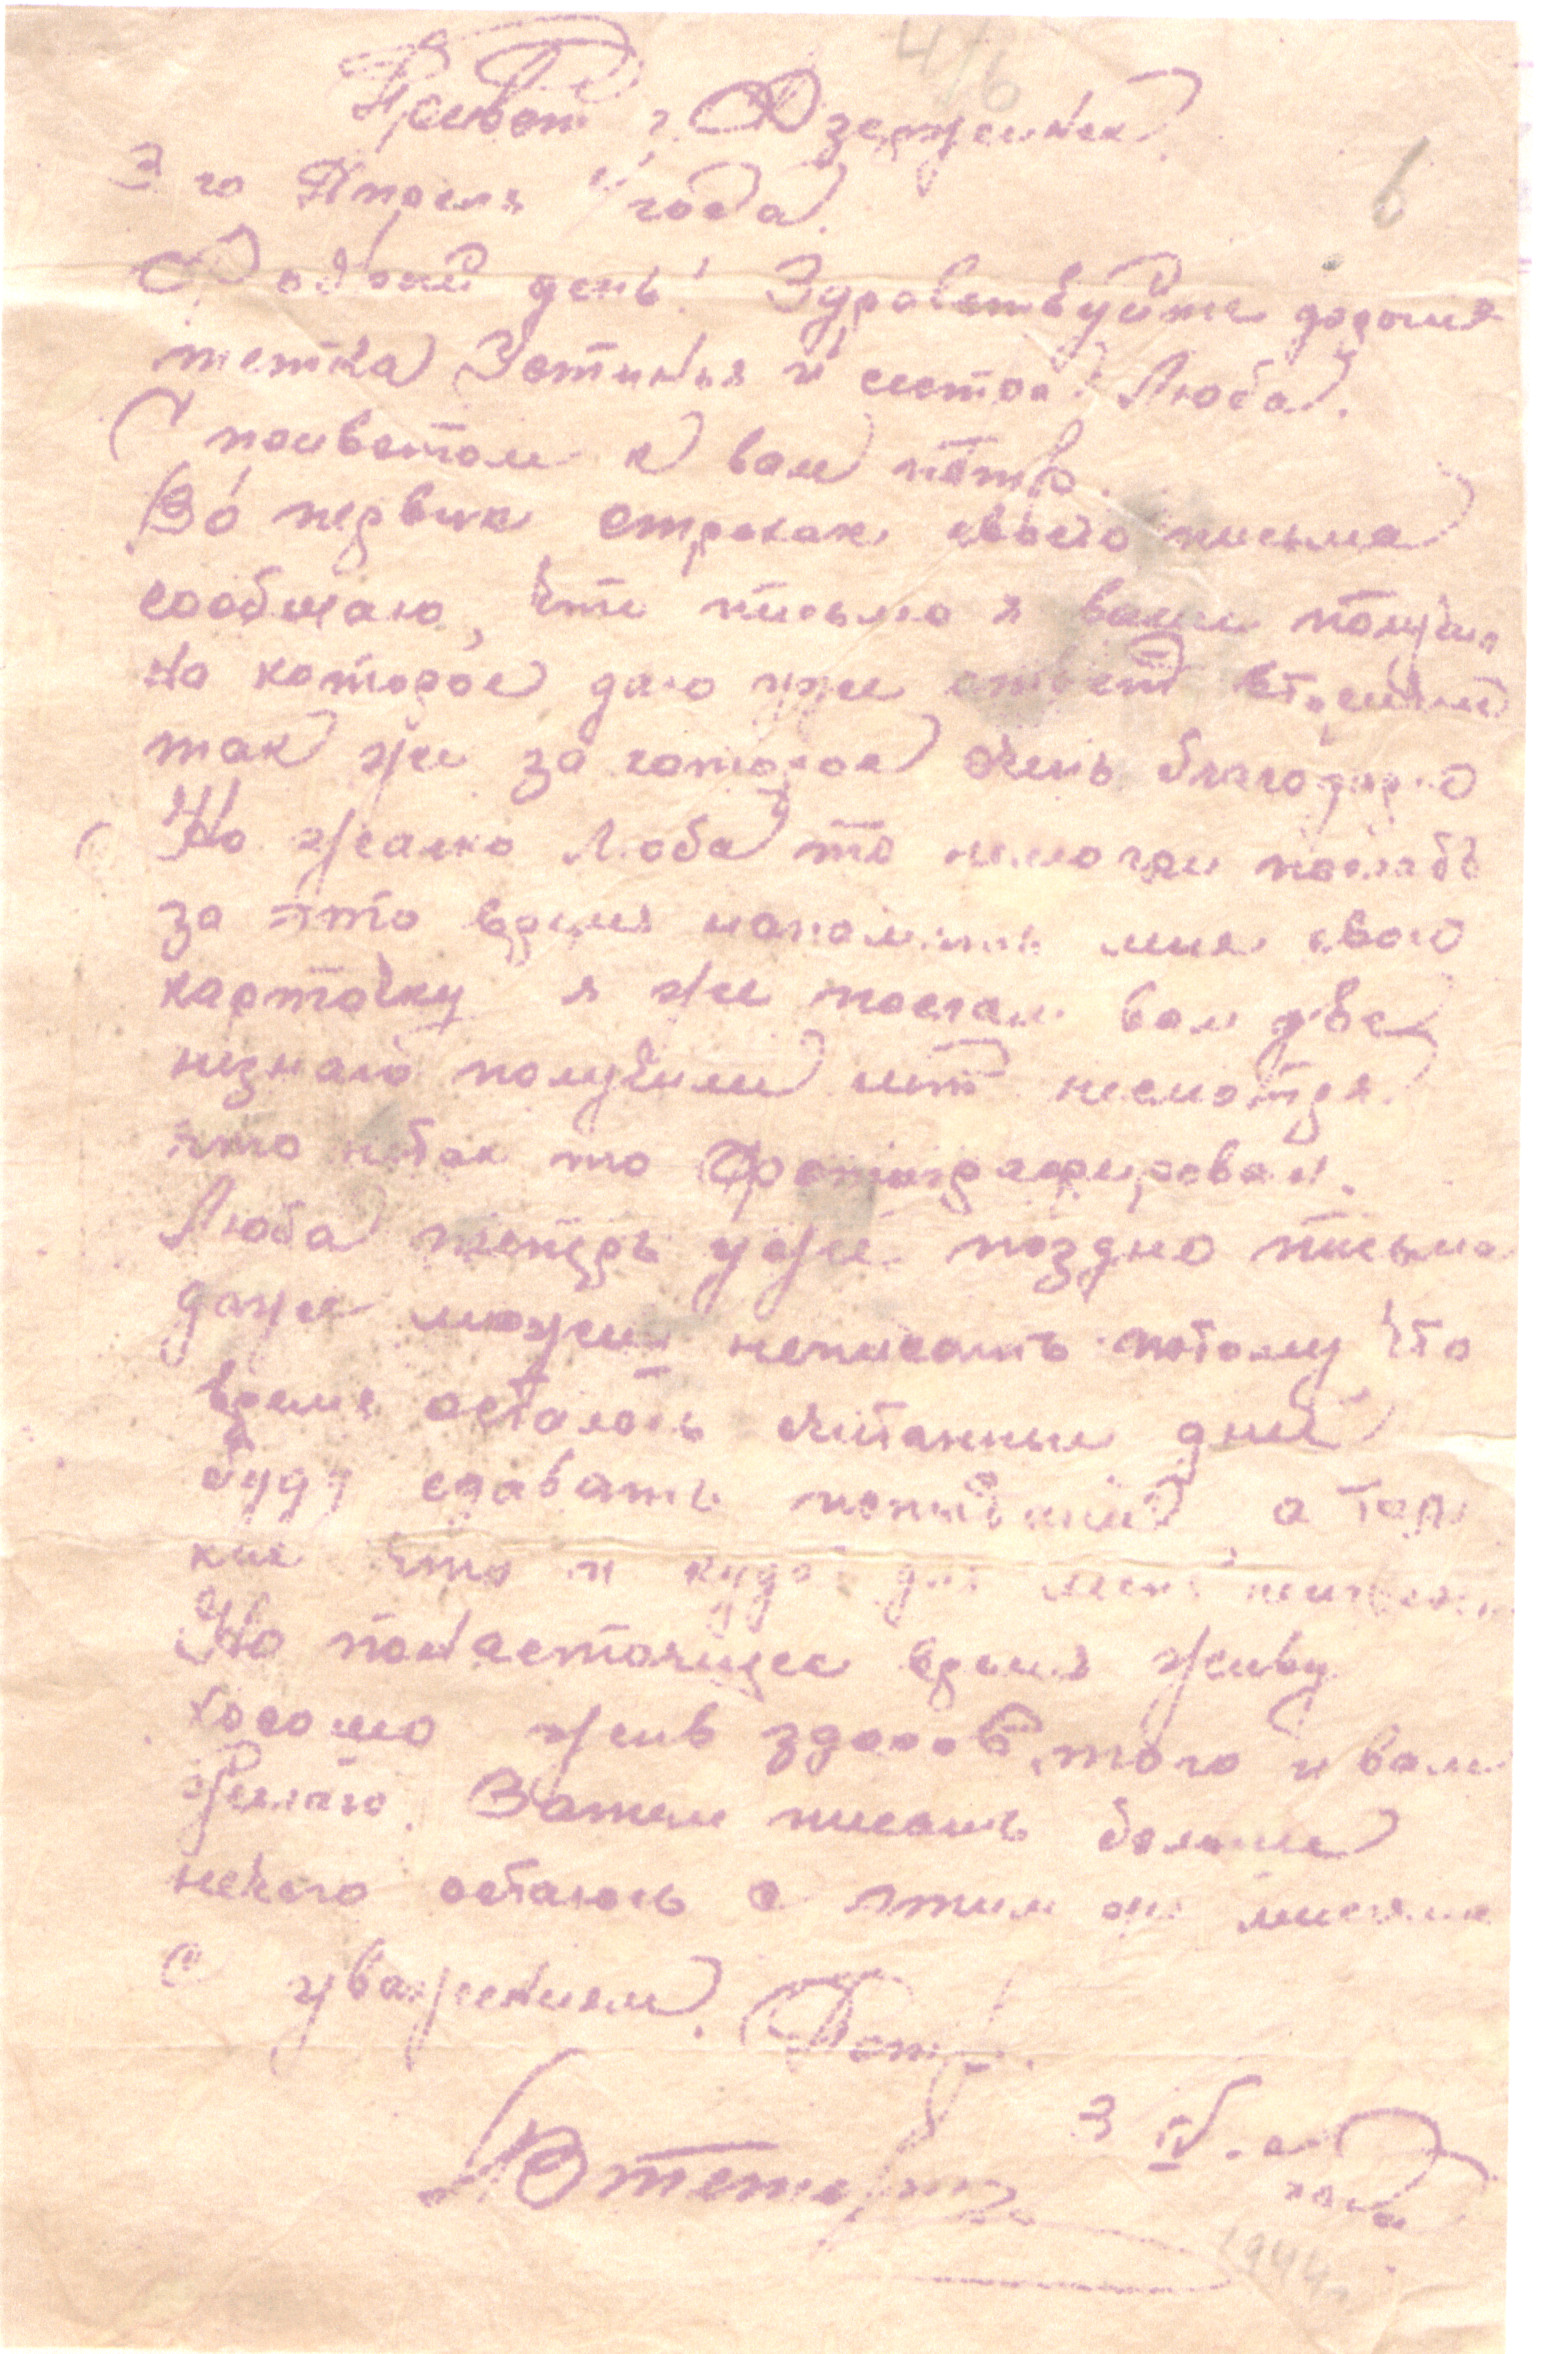 4/6
Привет г. Дзержинск.
6
3 го Апреля 4 года.
Добрый день! Здравствуйте дорогие
тетка Зотинья и сестра Люба.
С приветом к вам Пётр.
Во первых строках своего письма
сообщаю, что письмо я ваше получил
на которое даю уже ответ вторичный
так же за которое очень благодарю
Но жалко Люба ты не могли послать
за это время мне свою
карточку я же послал вам две
незнаю получили нет несмотря
что не так то фотографирован.
Люба теперь уже поздно письма
даже можеш неписать потому что
время осталось считанные дни
буду сдавать а там
кие что и куда для меня
Но понастоящее время живу
хорошо жив здоров, того и вам
желаю. Затем писать больше
нечего остаюсь с этим же
с уважением. Пётр.
3 IV. 4
года
1944 г.